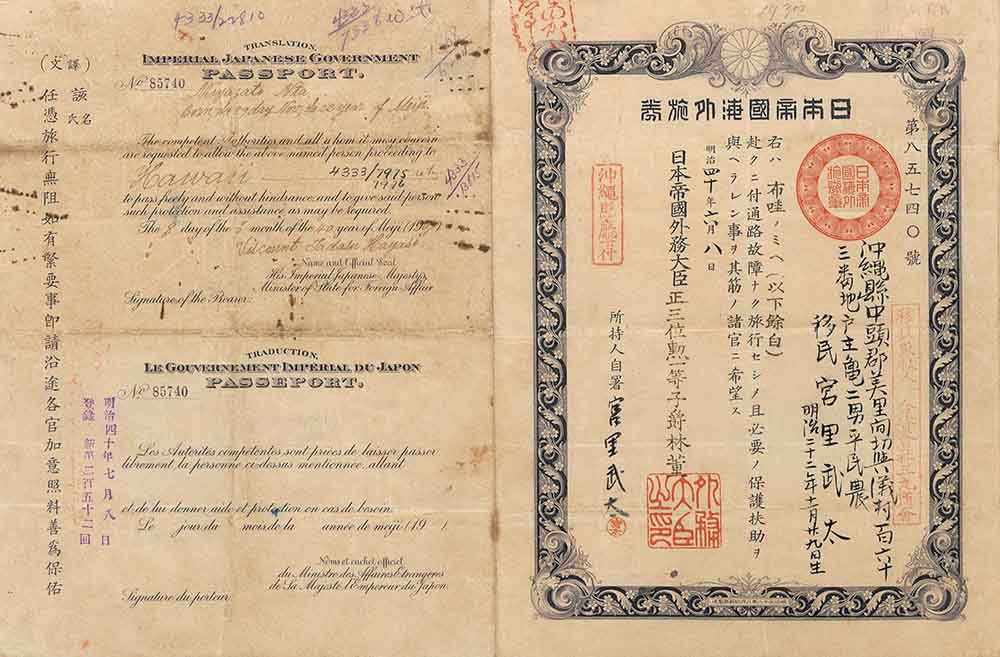 日本帝國海外旅券
第八五七四〇號
日本帝國海外旅券章
沖繩縣中頭郡美里間切與儀村百六十
三番地戸主亀二男平民農
移民 宮里武太
明治二十二年十一月廿九日生
右ハ布哇ノミヘ(以下餘白)
赴クニ付通路故障ナク旅行セシメ且必要ノ保護扶助ヲ
與ヘラレン事ヲ其筋ノ諸官ニ希望ス
明治四十年六月八日
沖繩縣廳下付
日本帝國外務大臣正三位勲一等子爵林董
外務大臣之印
所持人自署 宮里武太
4333/22810
4333
TRANSLATION,
IMPERIAL JAPANESE GOVERNMENT
PASSPORT.
No 85740
Miyazato
born day Nov. year of Meiji
The competent Authorities and all whom it may concern
are requested to allow the above named person proceeding to
Hawaii
4333/7975
1976
4333
to pass freely and without hindrance, and to give said person
such protection and assistance as may be required.
The 8 day of the month of the 40 year of Meiji (1907)
Viscount Tadasu Hayashi
Name and Official Seal
His Imperial Japanese Majesty's
Minister of State for Foreign Affair
Signature of the Bearer:
TRADUCTION,
LE GOUVERNEMENT IMPÉRIAL DU JAPON
PASSEPORT.
No 85740
Les Autorités compétentes sont priées de laisser passer
librement la personne ci-dessus mentionnée, allant
et de lui donner aide et protection en cas de besoin.
Le jour du mois de la année de meiji (19 )
Noms et cachet officiel
du Ministre des Affaires Etrangères
de Sa Majesté l'Empereur du Japon.
Signature du porteur.
明治四十年七月八日
登錄 第二百五十二回
(譯文)
該氏名
任憑旅行無阻如有緊要事卽請沿途各官加意照料善爲保佑